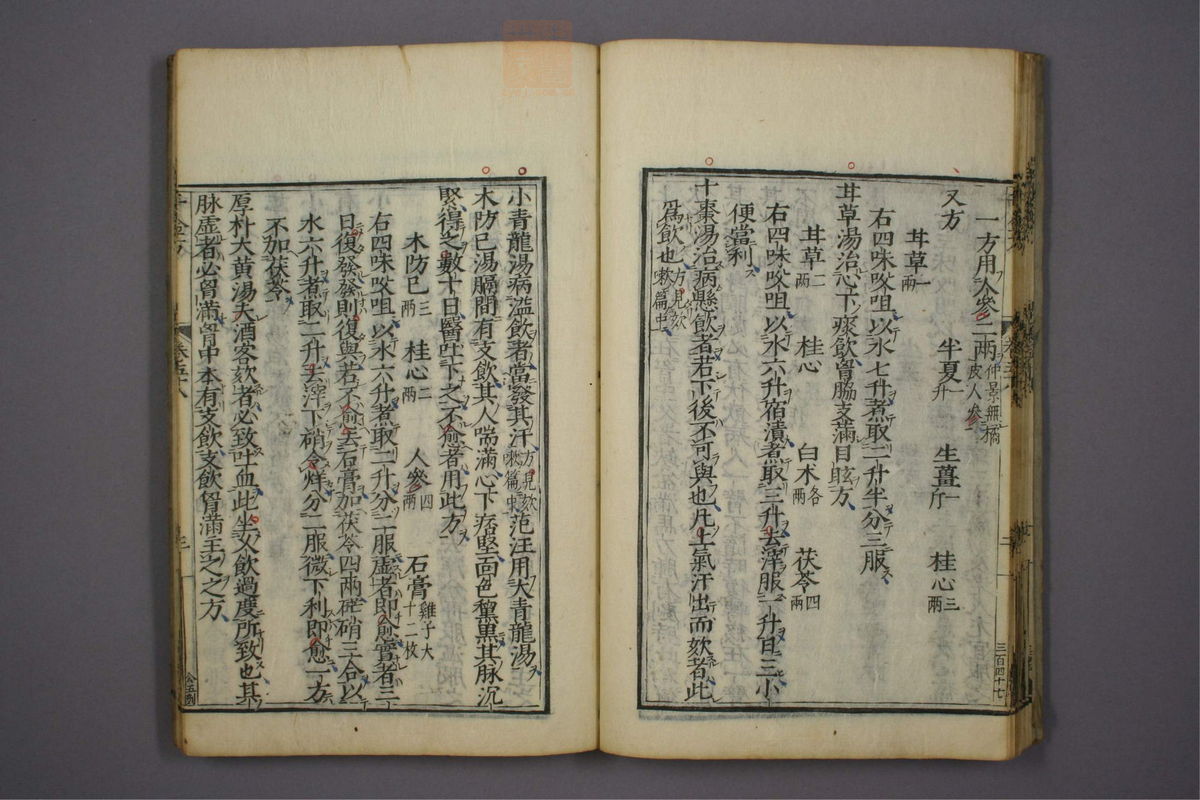 一方用人參二兩仲景無橘皮人參
又方　半夏一升　生薑一斤　桂心三兩
甘草一兩
右四味㕮咀以水七升煮取二升半分三服
甘草湯治心下痰飲胷脇支滿目眩方
甘草二兩　桂心　白朮各三兩　茯苓四兩
右四味㕮咀以水六升宿漬煮取三升去滓服一升日三小
便當利
十棗湯治病懸飲者若下後不可與也凡上氣汗出而欬者此
爲飲也方見欬嗽篇中
小青龍湯病溢飲者當發其汗方見欬嗽篇中范汪用大青龍湯
木防已湯膈間有支飲其人喘滿心下痞堅面色黧黑其脉沉
緊得之數十日醫吐下之不愈者用此方
木防已三兩　桂心二兩　人參四兩　石膏雞子大十二枚
右四味㕮咀以水六升煮取二升分二服虛者即愈實者三
日復發發則復與若不愈去石膏加茯苓四兩硭硝三合以
水六升煮取二升去滓下硝令烊分二服微下利即愈一方
不加茯苓
厚朴大黃湯夫酒客欬者必致吐血此坐久飲過度所致也其
脉虛者必胷滿胷中本有支飲支飲胷滿主之之方
三百四十七